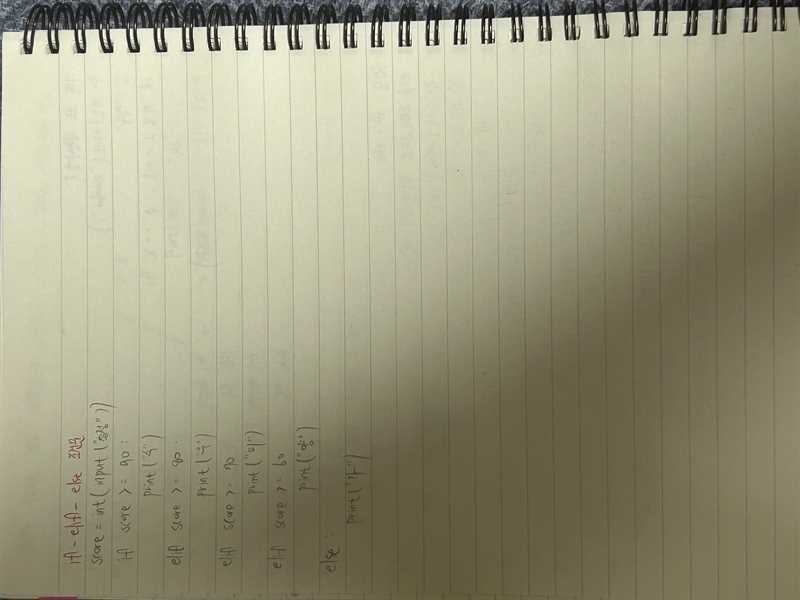 if - elif - else 조건문
score = int(input("총점"))
if score >= 90 :
print("수")
elif score >= 80 :
print("우")
elif score >= 70
print("미")
elif score >= 60
print("양")
else :
print("가")